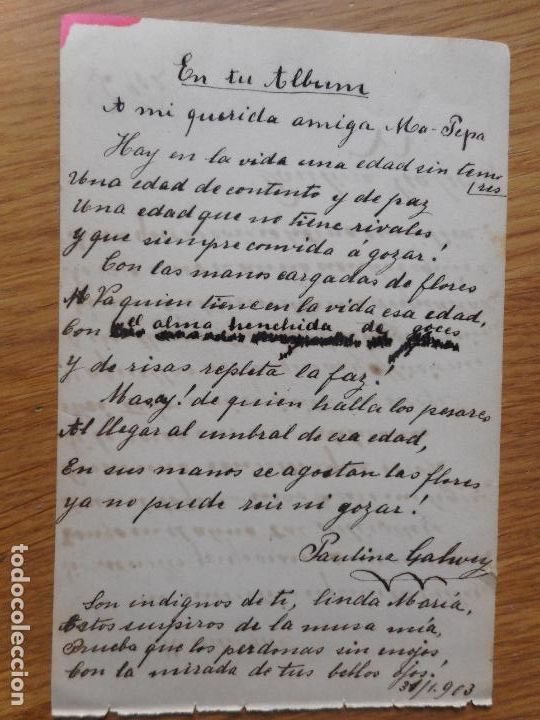 En tu Album
A mi querida amiga Ma-Pepa
Hay en la vida una edad sin temo
res
Una edad de contento y de paz
Una edad que no tiene rivales
Y que siempre convida á gozar!
Con las manos cargadas de flores
Va quien tiene en la vida esa edad,
Con el alma henchida de goces
Y de risas repleta la faz!
Mas ay! de quien halla los pesares
Al llegar al umbral de esa edad,
En sus manos se agostan las flores
ya no puede reir ni gozar!
Paulina Galvey
Son indignos de ti, linda María,
Estos suspiros de la musa mía,
Prueba que los perdonas sin enojos
Con la mirada de tus bellos ojos!
31/1.903
todocoleccion